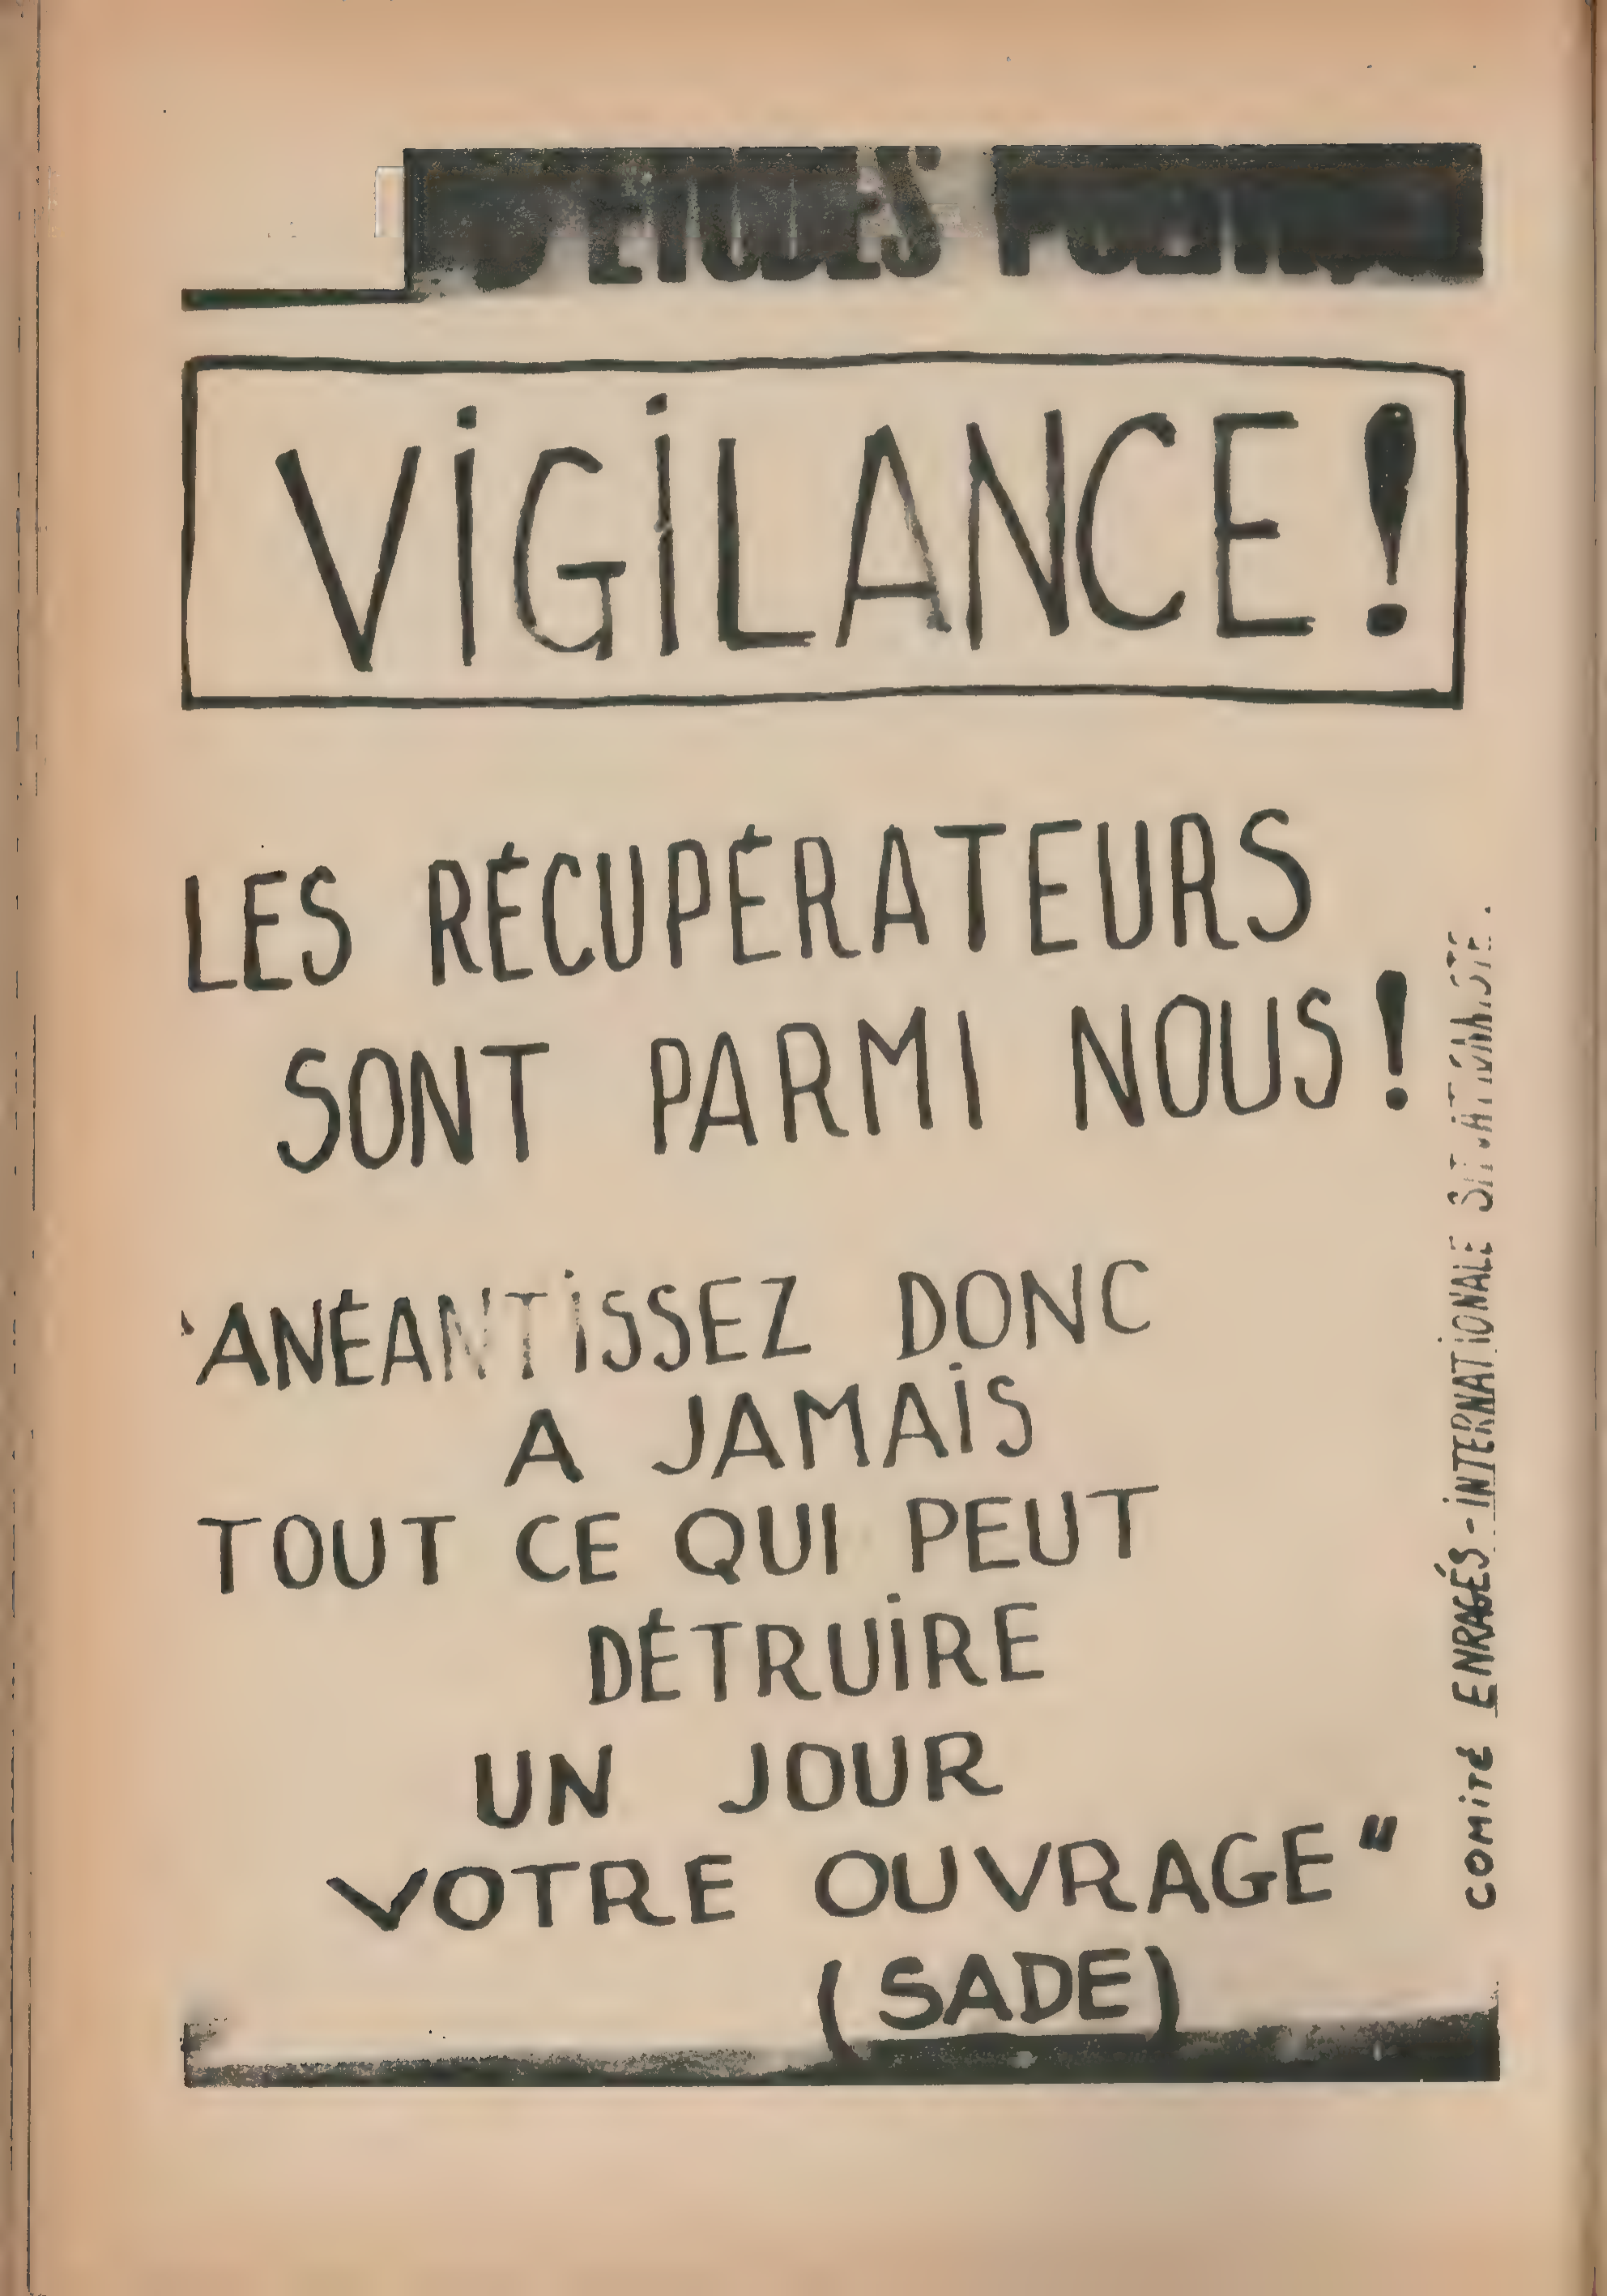 D'ÉTUDES
ViGiLANCE!
LES RÉCUPÉRATEURS
SONT PARMI NOUS!
"ANÉANTiSSEZ DONC
A JAMAiS
TOUT CE QUI PEUT
DÉTRUiRE
UN JOUR
VOTRE OUVRAGE"
(SADE)
COMiTÉ ENRAGÉS-iNTERNATiONALE SiTUATiONNiSTE.